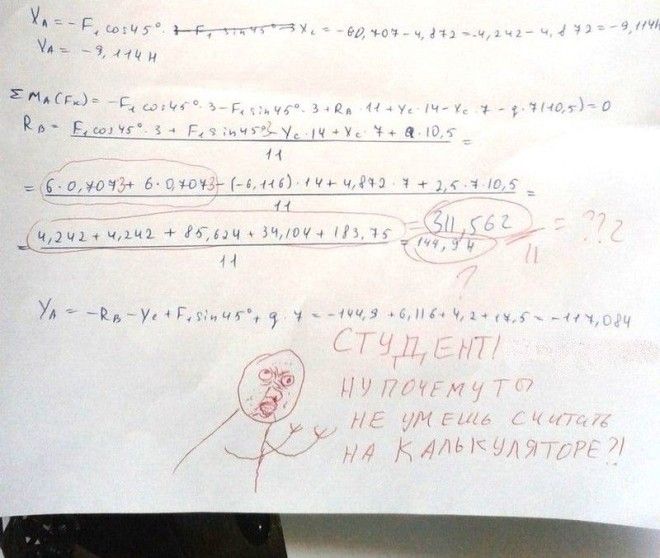 X_A = -F₁cos45° X_C = -60,707-4,872 = -4,242-4,872 = -9,114H
X_A = -9,114 H
ΣM_A(F_K) = -F₁cos45°·3-F₁sin45°·3+R_B·11+Y_C·14-X_C·7-q·7(10,5)=0
R_B = F₁cos45°·3 + F₁sin45°3-Y_C·14+X_C·7+Q·10,5 =
11
= 6·0,7073+6·0,7073-(-6,116)·14+4,872·7+2,5·7·10,5 =
11
= 4,242+4,242+85,624+34,104+183,75 = 311,562 = ???
11 = 144,94 11
?
Y_A = -R_B-Y_C+F₁sin45°+q·7 = -144,9+6,116+4,2+17,5 = -117,084
СТУДЕНТ!
НУ ПОЧЕМУ ТЫ
НЕ УМЕШЬ СЧИТАТЬ
НА КАЛЬКУЛЯТОРЕ?!